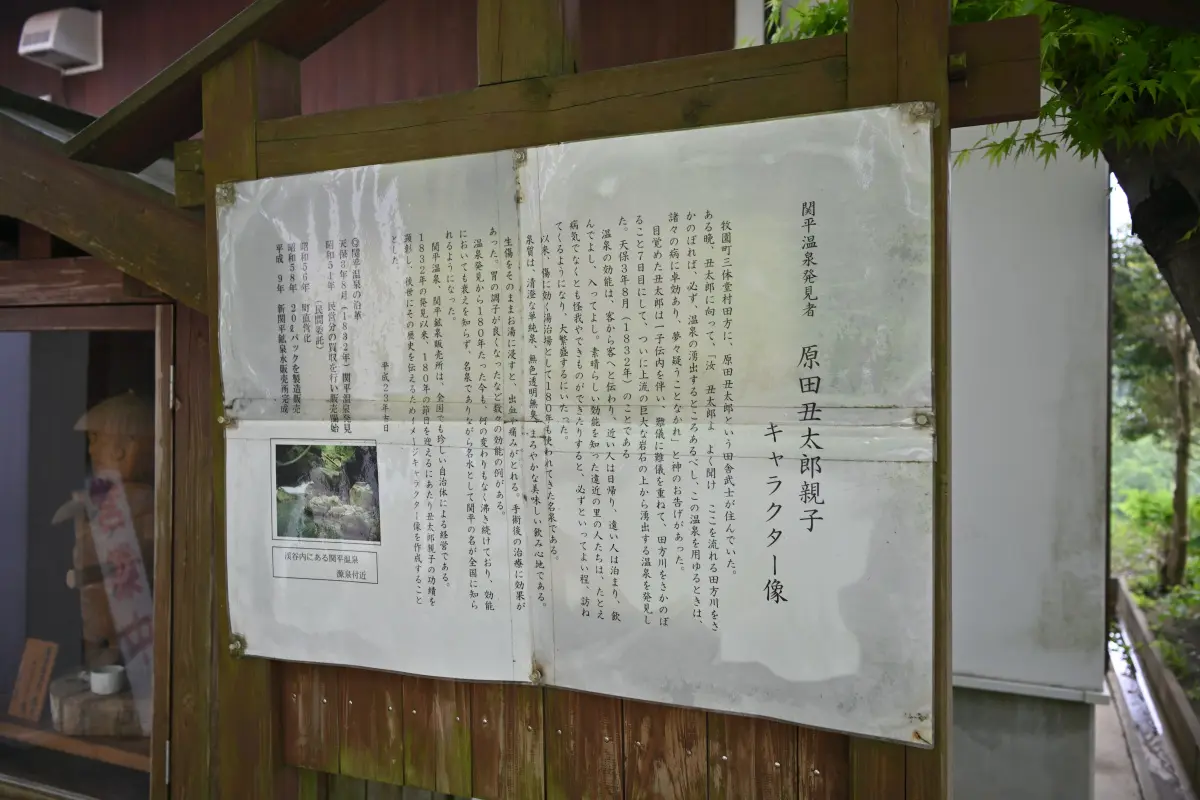 関平温泉発見者　原田丑太郎親子
キャラクター像
牧園町三体堂村田方に、原田丑太郎という田舎武士が住んでいた。
ある晩、丑太郎に向って、「汝　丑太郎よ　よく聞け　ここを流れる田方川をさ
かのぼれば、必ず、温泉の湧出するところあるべし、この温泉を用ゆるときは、
諸々の病に卓効あり、夢々疑うことなかれ」と神のお告げがあった。
目覚めた丑太郎は一子伝内を伴い、難儀に難儀を重ねて、田方川をさかのぼ
ること7日目にして、ついに上流の巨大な岩石の上から湧出する温泉を発見し
た。天保3年8月（1832年）のことである
温泉の効能は、客から客へと伝わり、近い人は日帰り、遠い人は泊まり、飲
んでよし、入ってよし。素晴らしい効能を知った遠近の里の人たちは、たとえ
病気でなくとも怪我やできものができたりすると、必ずといってよい程、訪ね
てくるようになり、大繁盛するにいたった。
以来、傷に効く湯治場として180年も使われてきた名泉である。
泉質は、清澄な単純泉、無色透明無臭、まろやかな美味しい飲み心地である。
生傷をそのままお湯に浸すと、出血や痛みがとれる。手術後の治療に効果が
あった。胃の調子が良くなったなど数々の効能の例がある。
温泉発見から180年たった今も、何の変わりもなく沸き続けており、効能
においても衰えを知らず、名泉でありながら名水として関平の名が全国に知ら
れるようになった。
関平温泉、関平鉱泉販売所は、全国でも珍しい自治体による経営である。
1832年の発見以来、180年の節目を迎えるにあたり丑太郎親子の功績を
顕彰し、後世にその歴史を伝えるためイメージキャラクター像を作成すること
とした。
平成23年吉日
◎関平温泉の沿革
天保3年8月（1832年）関平温泉発見
昭和51年　民営分の買収を行い販売開始
（民間委託）
昭和56年　町直営化
昭和58年　20ℓパックを製造販売
平成　9年　新関平鉱泉水販売所完成
渓谷内にある関平温泉
源泉付近